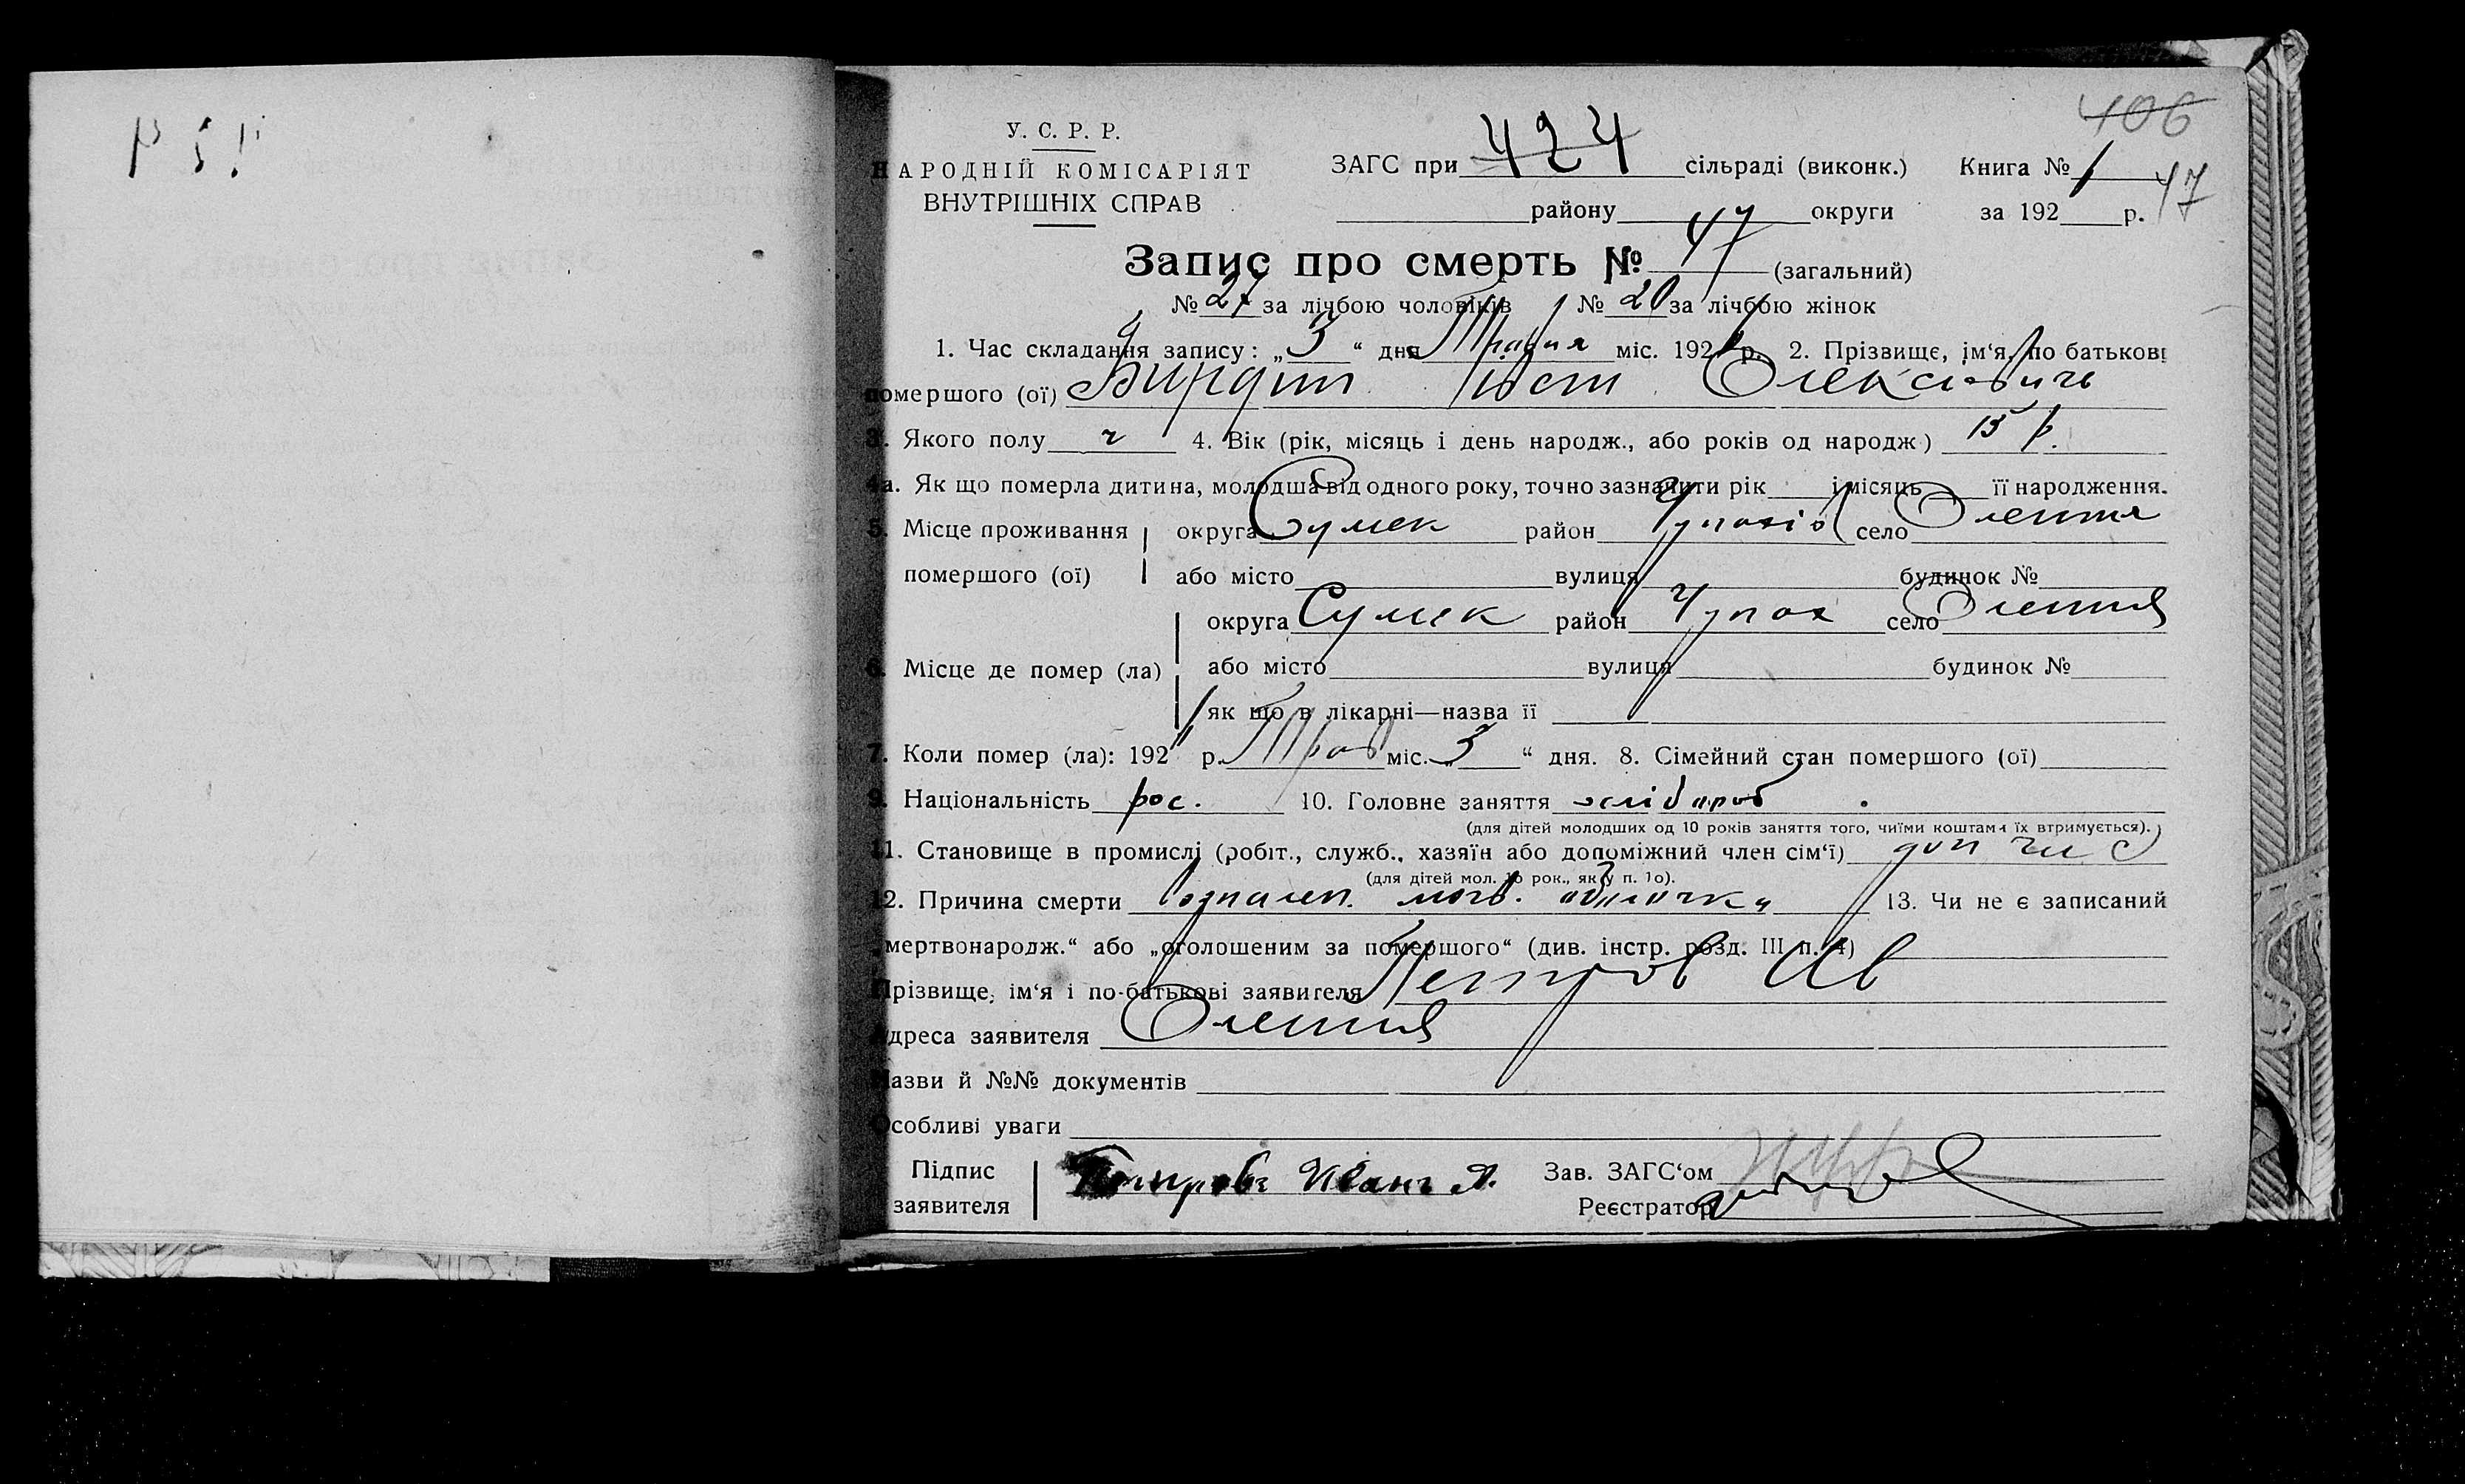 406
У. С. Р. Р.
НАРОДНІЙ КОМІСАРІЯТ
ВНУТРІШНІХ СПРАВ
ЗАГС при 424 сільраді (виконк.) Книга № 1
47
району округи за 192 р.
Запис про смерть № 47 (загальний)
№ 27 за лічбою чоловіків № 20 за лічбою жінок
1. Час складання запису: „3“ дня Травня міс. 192 р. 2. Прізвище, ім‘я, по батькові
помершого (ої) Олексієвичь
3. Якого полу ч 4. Вік (рік, місяць і день народж., або років од народж) 15 р.
4а. Як що померла дитина, молодша від одного року, точно зазначити рік і місяць її народження.
5. Місце проживання округа Сумск район село
помершого (ої) або місто вулиця будинок №
округа Сумск район село
6. Місце де помер (ла) або місто вулиця будинок №
як що в лікарні—назва її
7. Коли помер (ла): 192 р. Трав міс. „3“ дня. 8. Сімейний стан помершого (ої)
9. Національність рос. 10. Головне заняття хлібороб
(для дітей молодших од 10 років заняття того, чиїми коштами їх втримується).
11. Становище в промислі (робіт., служб., хазяїн або допоміжний член сім‘ї) доп чл с
(для дітей мол. 10 рок., як у п. 10).
12. Причина смерти 13. Чи не є записаний
„мертвонародж.“ або „оголошеним за помершого“ (див. інстр. розд. III п. 4)
Прізвище, ім‘я і по-батькові заявителя Петров Ив
Адреса заявителя
Назви й №№ документів
Особливі уваги
Підпис заявителя Петровъ Иванъ А. Зав. ЗАГС‘ом
Реєстратор